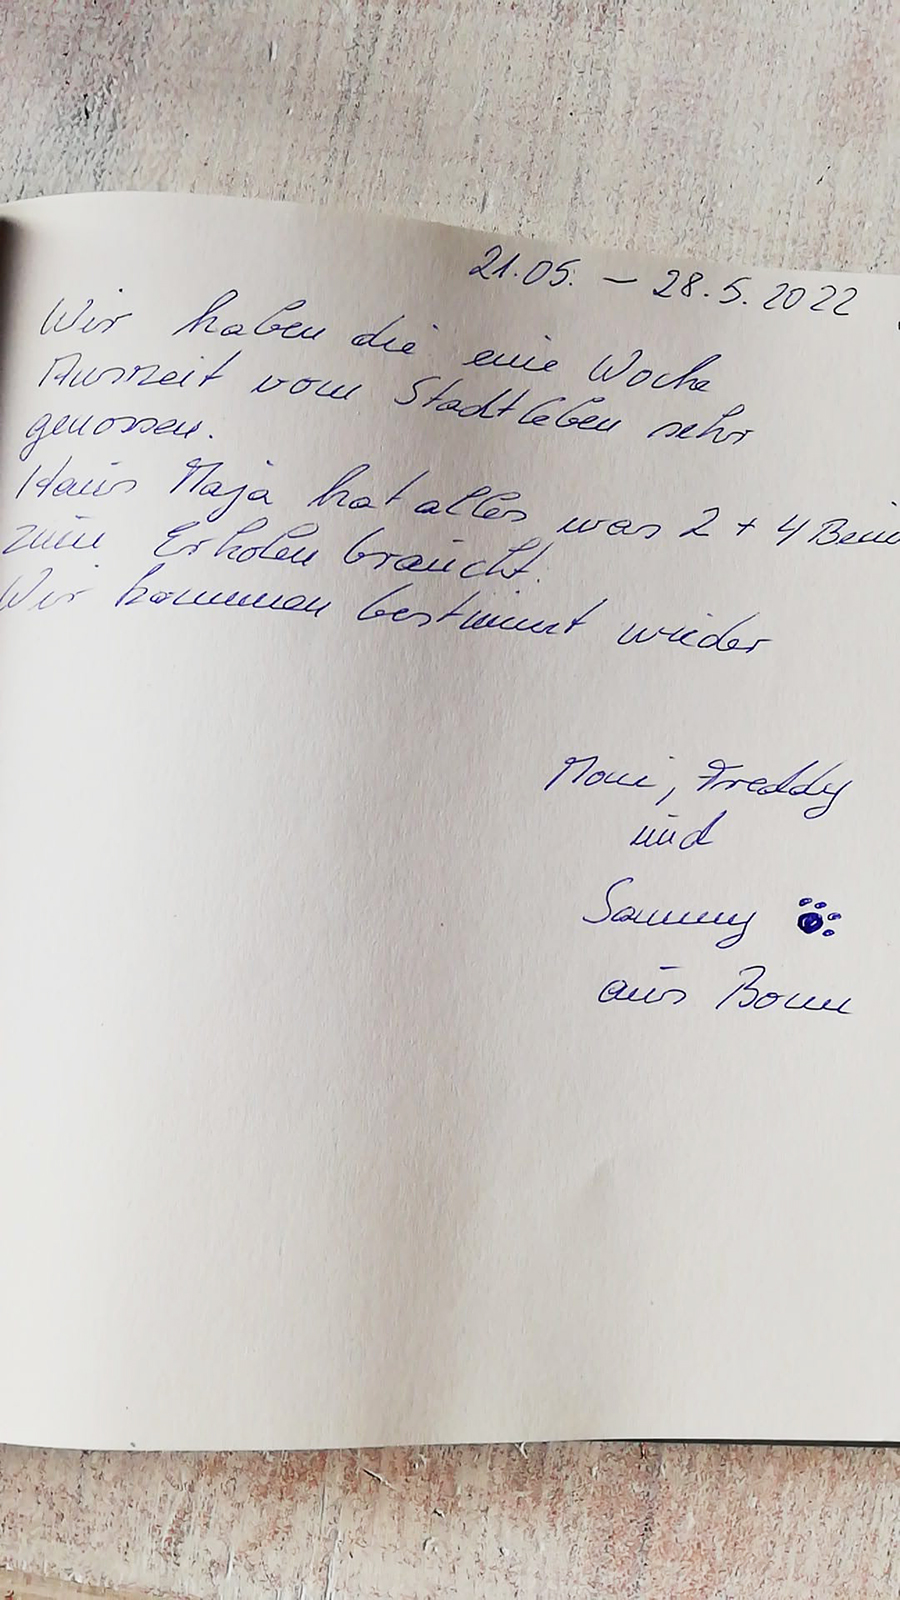 21.05. – 28.5.2022
Wir haben die eine Woche
Auszeit vom Stadtleben sehr
genossen.
Haus Maja hat alles was 2 + 4 Bein
zum Erholen braucht.
Wir kommen bestimmt wieder
Moni, Freddy
und
Sammy
aus Bonn